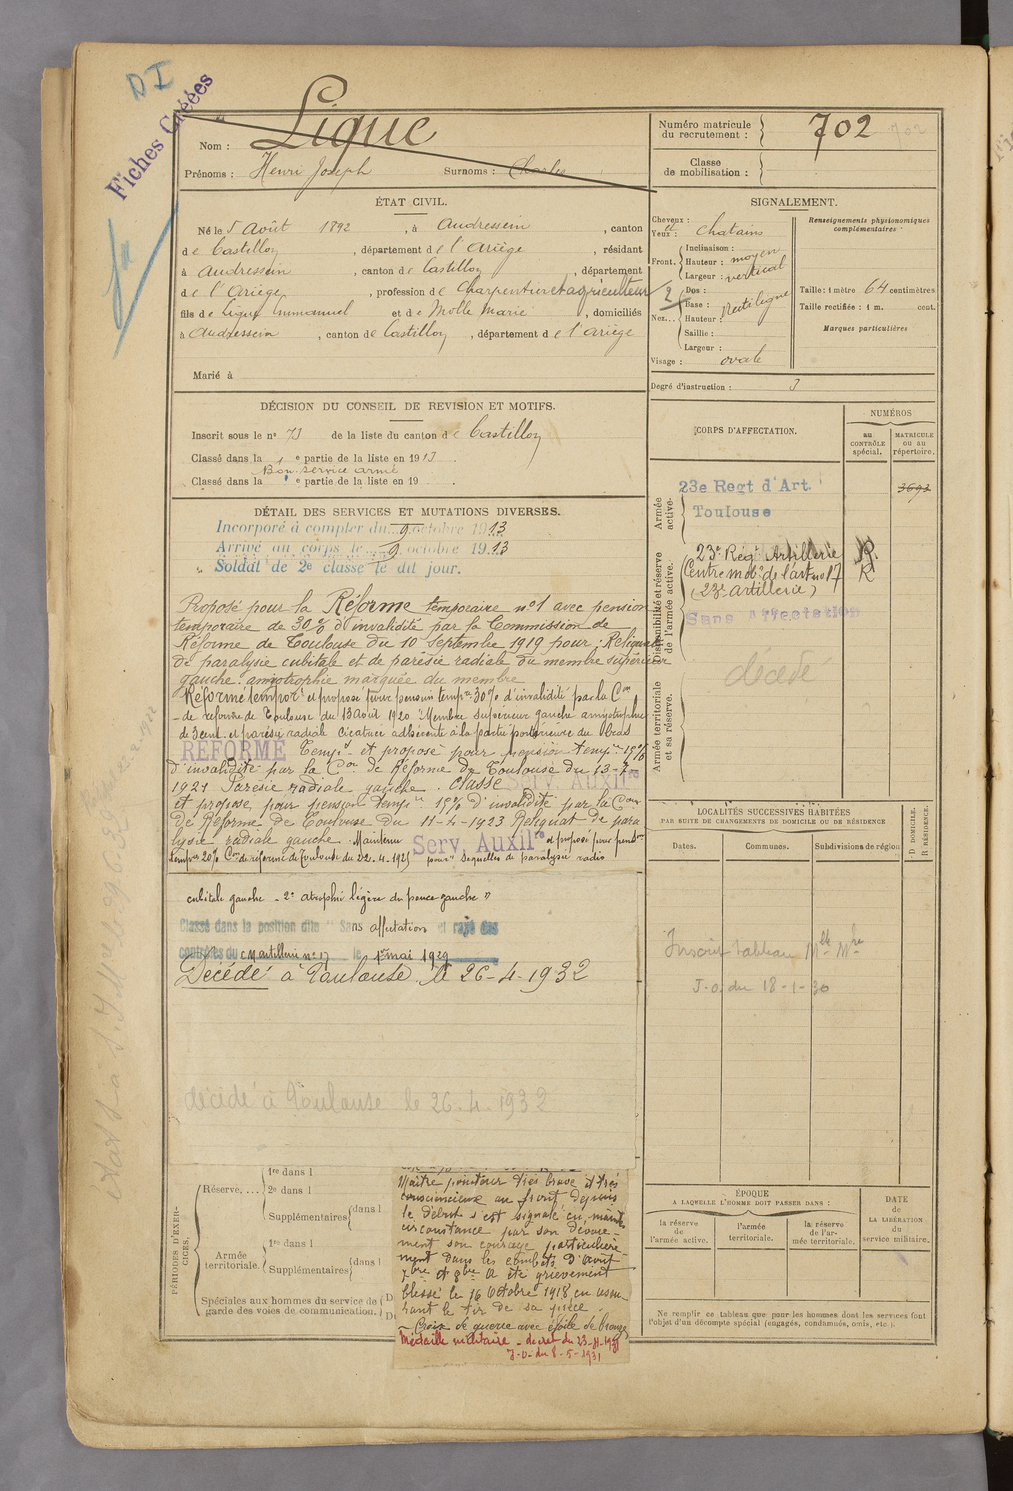 D I
Fiches Créées
Nom : Ligue
Prénoms : Henri Joseph Surnoms : Charles
Numéro matricule du recrutement : 702
Classe de mobilisation :
ÉTAT CIVIL.
Né le 5 Août 1892, à Audressein, canton
de Castillon, département de l'Ariège, résidant
à Audressein, canton de Castillon, département
de l'Ariège, profession de Charpentier et agriculteur
fils de Ligue Emmanuel et de Molle Marie, domiciliés
à Audressein, canton de Castillon, département de l'ariège
Marié à
SIGNALEMENT.
Cheveux :
et
Yeux : chatains
Front. Inclinaison :
Hauteur : moyen
Largeur : vertical
Nez... Dos :
Base : Rectiligne
Hauteur :
Saillie :
Largeur :
Visage : ovale
Renseignements physionomiques complémentaires
Taille : 1 mètre 64 centimètres
Taille rectifiée : 1 m. cent.
Marques particulières
Degré d'instruction : 3
DÉCISION DU CONSEIL DE REVISION ET MOTIFS.
Inscrit sous le n° 73 de la liste du canton de Castillon
Classé dans la 1e partie de la liste en 1913.
Bon service armé
Classé dans la e partie de la liste en 19 .
DÉTAIL DES SERVICES ET MUTATIONS DIVERSES.
Incorporé à compter du 9 octobre 1913
Arrivé au corps le 9 octobre 1913
Soldat de 2e classe le dit jour.
Proposé pour la Réforme temporaire n°1 avec pension
temporaire de 30% d'invalidité par la Commission de
Réforme de Toulouse du 10 Septembre 1919 pour : Reliquat
de paralysie cubitale et de parésie radiale du membre supérieur
gauche. amyotrophie marquée du membre
Réformé tempore et proposé pour pension tempre 30% d'invalidité par la Con
de réforme de Toulouse du 13 Août 1920 Membre supérieur gauche amyotrophie
de 3 cent. et parésie radiale cicatrice adhérente à la partie postérieure du bras
REFORMÉ Tempre et proposé pour pension tempre 15%
d'invalidité par la Con de Réforme de Toulouse du 13-7-
1921 Parésie radiale gauche. Classé Serv. Auxilre
et proposé pour pension tempre 15% d'invalidité par la Con
de Réforme de Toulouse du 11-4-1923 Reliquat de para
lysie radiale gauche. Maintenu Serv. Auxilre et proposé pour pension
tempre 20% Con de réforme de Toulouse du 22.4.1925 pour séquelles de paralysie radio
cubitale gauche - 2° atrophie légère du pouce gauche
Classé dans la position dite "Sans affectation et rayé des
contrôles du Cm artillerie n° 17 le 1er mai 1929
Décédé à Toulouse le 26-4-1932
décédé à Toulouse le 26.4.1932
CORPS D'AFFECTATION.
NUMÉROS
au CONTRÔLE spécial.
MATRICULE ou au répertoire.
Armée active.
23e Regt d'Art. 3693
Toulouse
Disponibilité et réserve de l'armée active.
23e Regt Artillerie R.
Centre mobn de l'art n° 17 R
(23e Artillerie)
Sans affectation
Armée territoriale et sa réserve.
décédé
LOCALITÉS SUCCESSIVES HABITÉES
PAR SUITE DE CHANGEMENTS DE DOMICILE OU DE RÉSIDENCE
Dates. Communes. Subdivisions de région
D DOMICILE.
R RÉSIDENCE.
Inscrit tableau Mlle Mre
J.O. du 18-1-30
PÉRIODES D'EXERCICES.
Réserve, .... 1re dans l
2e dans l
Supplémentaires dans l
Armée territoriale. 1re dans l
Supplémentaires dans l
Spéciales aux hommes du service de
garde des voies de communication.
Maitre pointeur très brave et très
consciencieux au front depuis
le début s'est signalé en mainte
circonstance par son dévoue-
ment son courage particulière
ment dans les combats d'Août
7bre et 8bre a été grièvement
blessé le 16 Octobre 1918 en assu
rant le tir de sa pièce.
Croix de guerre avec étoile de bronze
Médaille militaire - décret du 23-4-1931
J.O. du 8-5-1931
ÉPOQUE
A LAQUELLE L'HOMME DOIT PASSER DANS :
la réserve de l'armée active.
l'armée territoriale.
la réserve de l'armée territoriale.
DATE
de
LA LIBÉRATION
du
service militaire.
Ne remplir ce tableau que pour les hommes dont les services font
l'objet d'un décompte spécial (engagés, condamnés, omis, etc.).